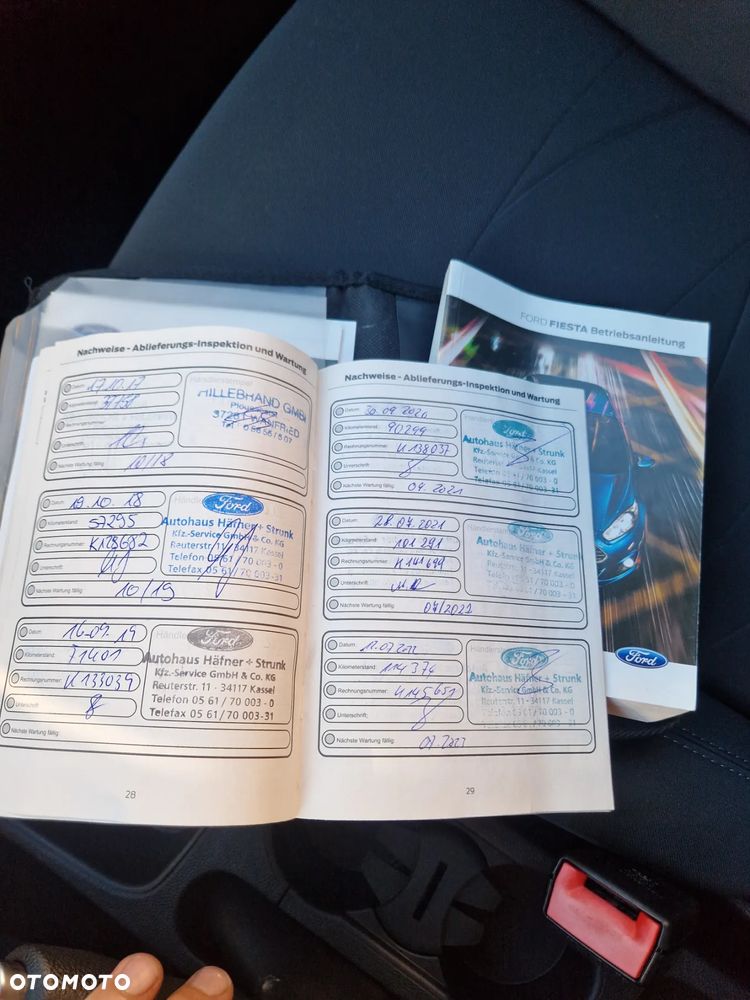 FORD FIESTA Betriebsanleitung
Ford
Nachweise - Ablieferungs-Inspektion und Wartung
Datum: 17.10.17
Kilometerstand:
Rechnungsnummer:
Unterschrift:
Nächste Wartung fällig: 10/18
HILLEBRAND GMBH
Datum: 19.10.18
Kilometerstand: 57295
Rechnungsnummer:
Unterschrift:
Nächste Wartung fällig: 10/19
Ford
Autohaus Häfner + Strunk
Kfz-Service GmbH & Co. KG
Reuterstr. 11 - 34117 Kassel
Telefon 05 61 / 70 003 - 0
Telefax 05 61 / 70 003-31
Datum: 16.09.19
Kilometerstand: 71401
Rechnungsnummer: K133039
Unterschrift:
Nächste Wartung fällig:
Ford
Autohaus Häfner + Strunk
Kfz-Service GmbH & Co. KG
Reuterstr. 11 - 34117 Kassel
Telefon 05 61 / 70 003 - 0
Telefax 05 61 / 70 003-31
28
Nachweise - Ablieferungs-Inspektion und Wartung
Datum: 30.09.2020
Kilometerstand: 90299
Rechnungsnummer: K138037
Unterschrift:
Nächste Wartung fällig: 09.2021
Autohaus Häfner + Strunk
Kfz-Service GmbH & Co. KG
Reuterstr. 11 - 34117 Kassel
Telefon 05 61 / 70 003 - 0
Telefax 05 61 / 70 003-31
Datum: 28.07.2021
Kilometerstand: 101291
Rechnungsnummer: K141699
Unterschrift:
Nächste Wartung fällig: 07/2022
Autohaus Häfner + Strunk
Kfz-Service GmbH & Co. KG
Reuterstr. 11 - 34117 Kassel
Telefon 05 61 / 70 003 - 0
Telefax 05 61 / 70 003-31
Datum:
Kilometerstand: 114374
Rechnungsnummer: K145651
Unterschrift:
Nächste Wartung fällig: 07.2023
Ford
Autohaus Häfner + Strunk
Kfz-Service GmbH & Co. KG
Reuterstr. 11 - 34117 Kassel
Telefon 05 61 / 70 003 - 0
Telefax 05 61 / 70 003-31
29
OTOMOTO